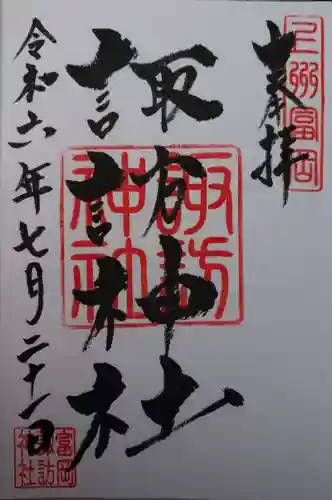 上州富岡
奉拝
諏訪神社
諏訪神社
令和六年七月二十一日
富岡
諏訪
神社